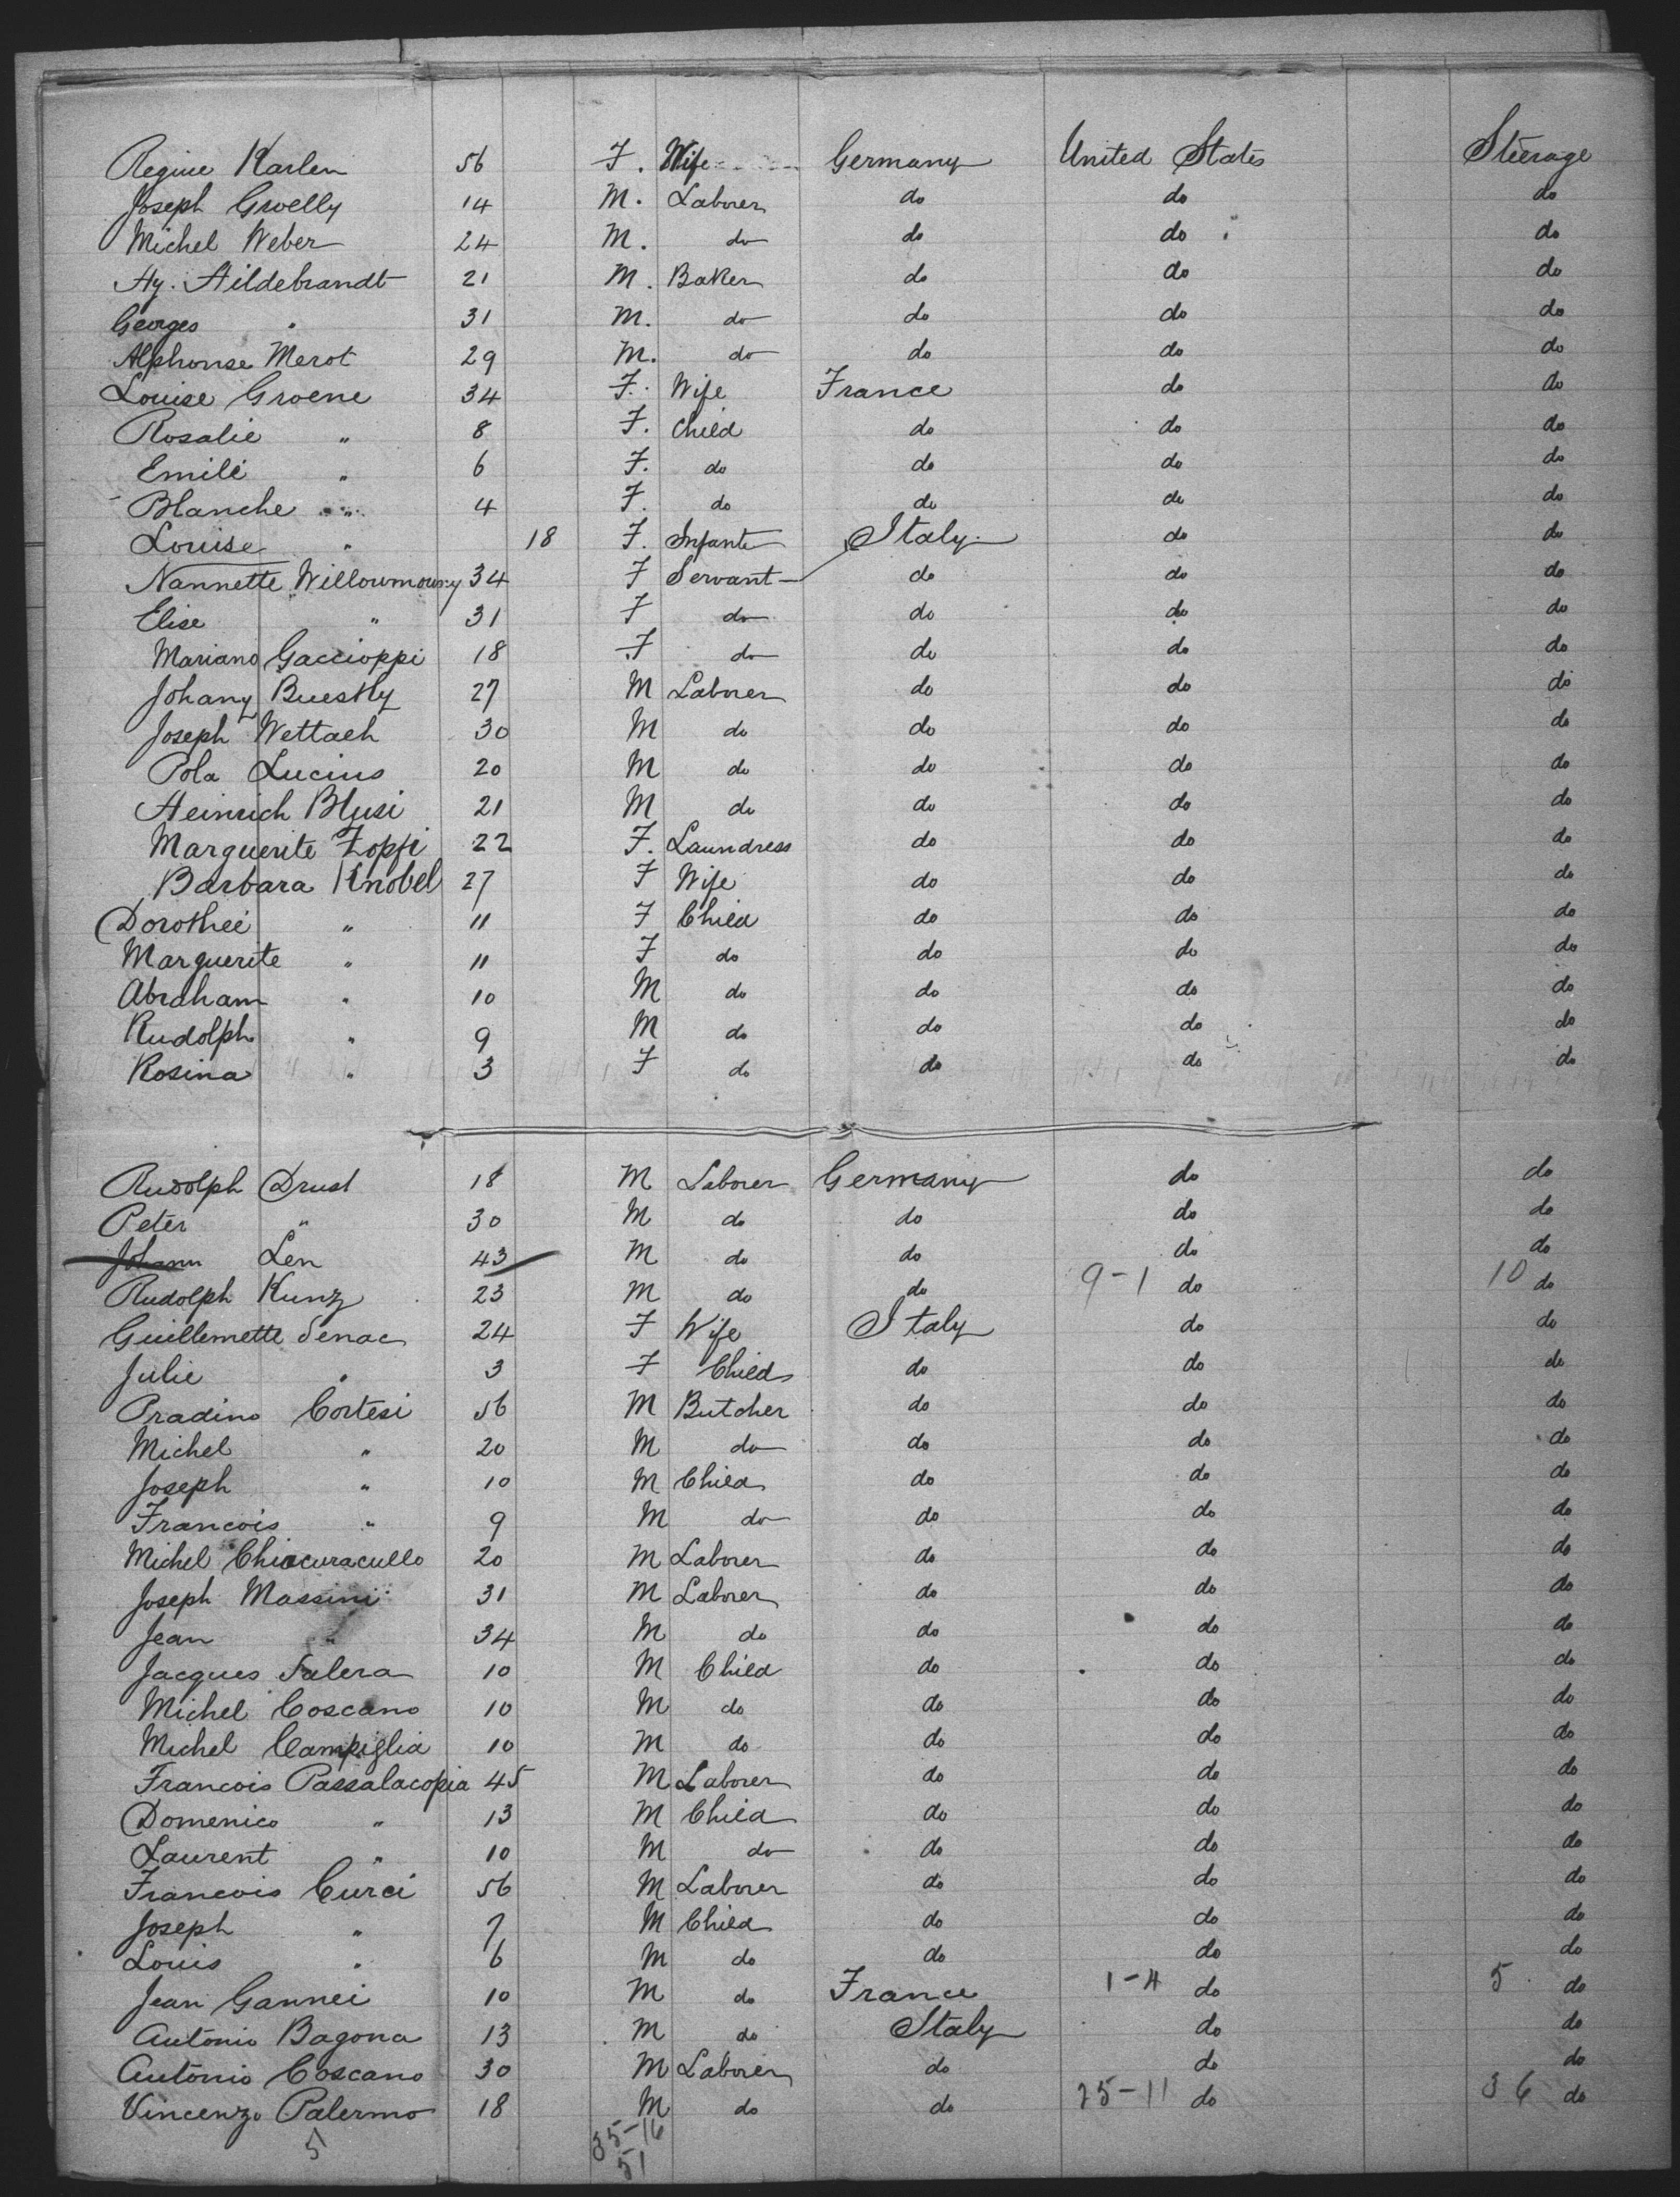 Regine Karlen 56 F. Wife Germany United States Steerage
Joseph Groelly 14 M. Laborer do do do
Michel Weber 24 M. do do do do
Hy. Hildebrandt 21 M. Baker do do do
Georges " 31 M. do do do do
Alphonse Merot 29 M. do do do do
Louise Groene 34 F. Wife France do do
Rosalie " 8 F. Child do do do
Emilie " 6 F. do do do do
Blanche " 4 F. do do do do
Louise " 18 F. Infante Italy do do
Nannette 34 F Servant do do do
Elise " 31 F do do do do
Mariano Gaccioppi 18 F do do do do
Johany Buesthy 27 M Laborer do do do
Joseph Wettach 30 M do do do do
Pola Lucius 20 M do do do do
Heinrich Blusi 21 M do do do do
Marguerite Zopfi 22 F. Laundress do do do
Barbara Knobel 27 F Wife do do do
Dorothee " 11 F Child do do do
Marguerite " 11 F do do do do
Abraham " 10 M do do do do
Rudolph " 9 M do do do do
Rosina " 3 F do do do do
Rudolph Drust 18 M Laborer Germany do do
Peter " 30 M do do do do
Johann Len 43 M do do do do
Rudolph Kunz 23 M do do 9-1 do 10 do
Guillemette Senac 24 F Wife Italy do do
Julie " 3 F Child do do do
Pradino Cortesi 56 M Butcher do do do
Michel " 20 M do do do do
Joseph " 10 M Child do do do
Francois " 9 M do do do do
Michel Chiacuracullo 20 M Laborer do do do
Joseph Massini 31 M Laborer do do do
Jean " 34 M do do do do
Jacques Salera 10 M Child do do do
Michel Coscano 10 M do do do do
Michel Campiglia 10 M do do do do
Francois Passalacopia 45 M Laborer do do do
Domenico " 13 M Child do do do
Laurent " 10 M do do do do
Francois Curci 56 M Laborer do do do
Joseph " 7 M Child do do do
Louis " 6 M do do do do
Jean Gannei 10 M do France 1-4 do 5 do
Antonio Bagona 13 M do Italy do do
Antonio Coscano 30 M Laborer do do do
Vincenzo Palermo 18 M do do 25-11 do 36 do
5 35-16
51